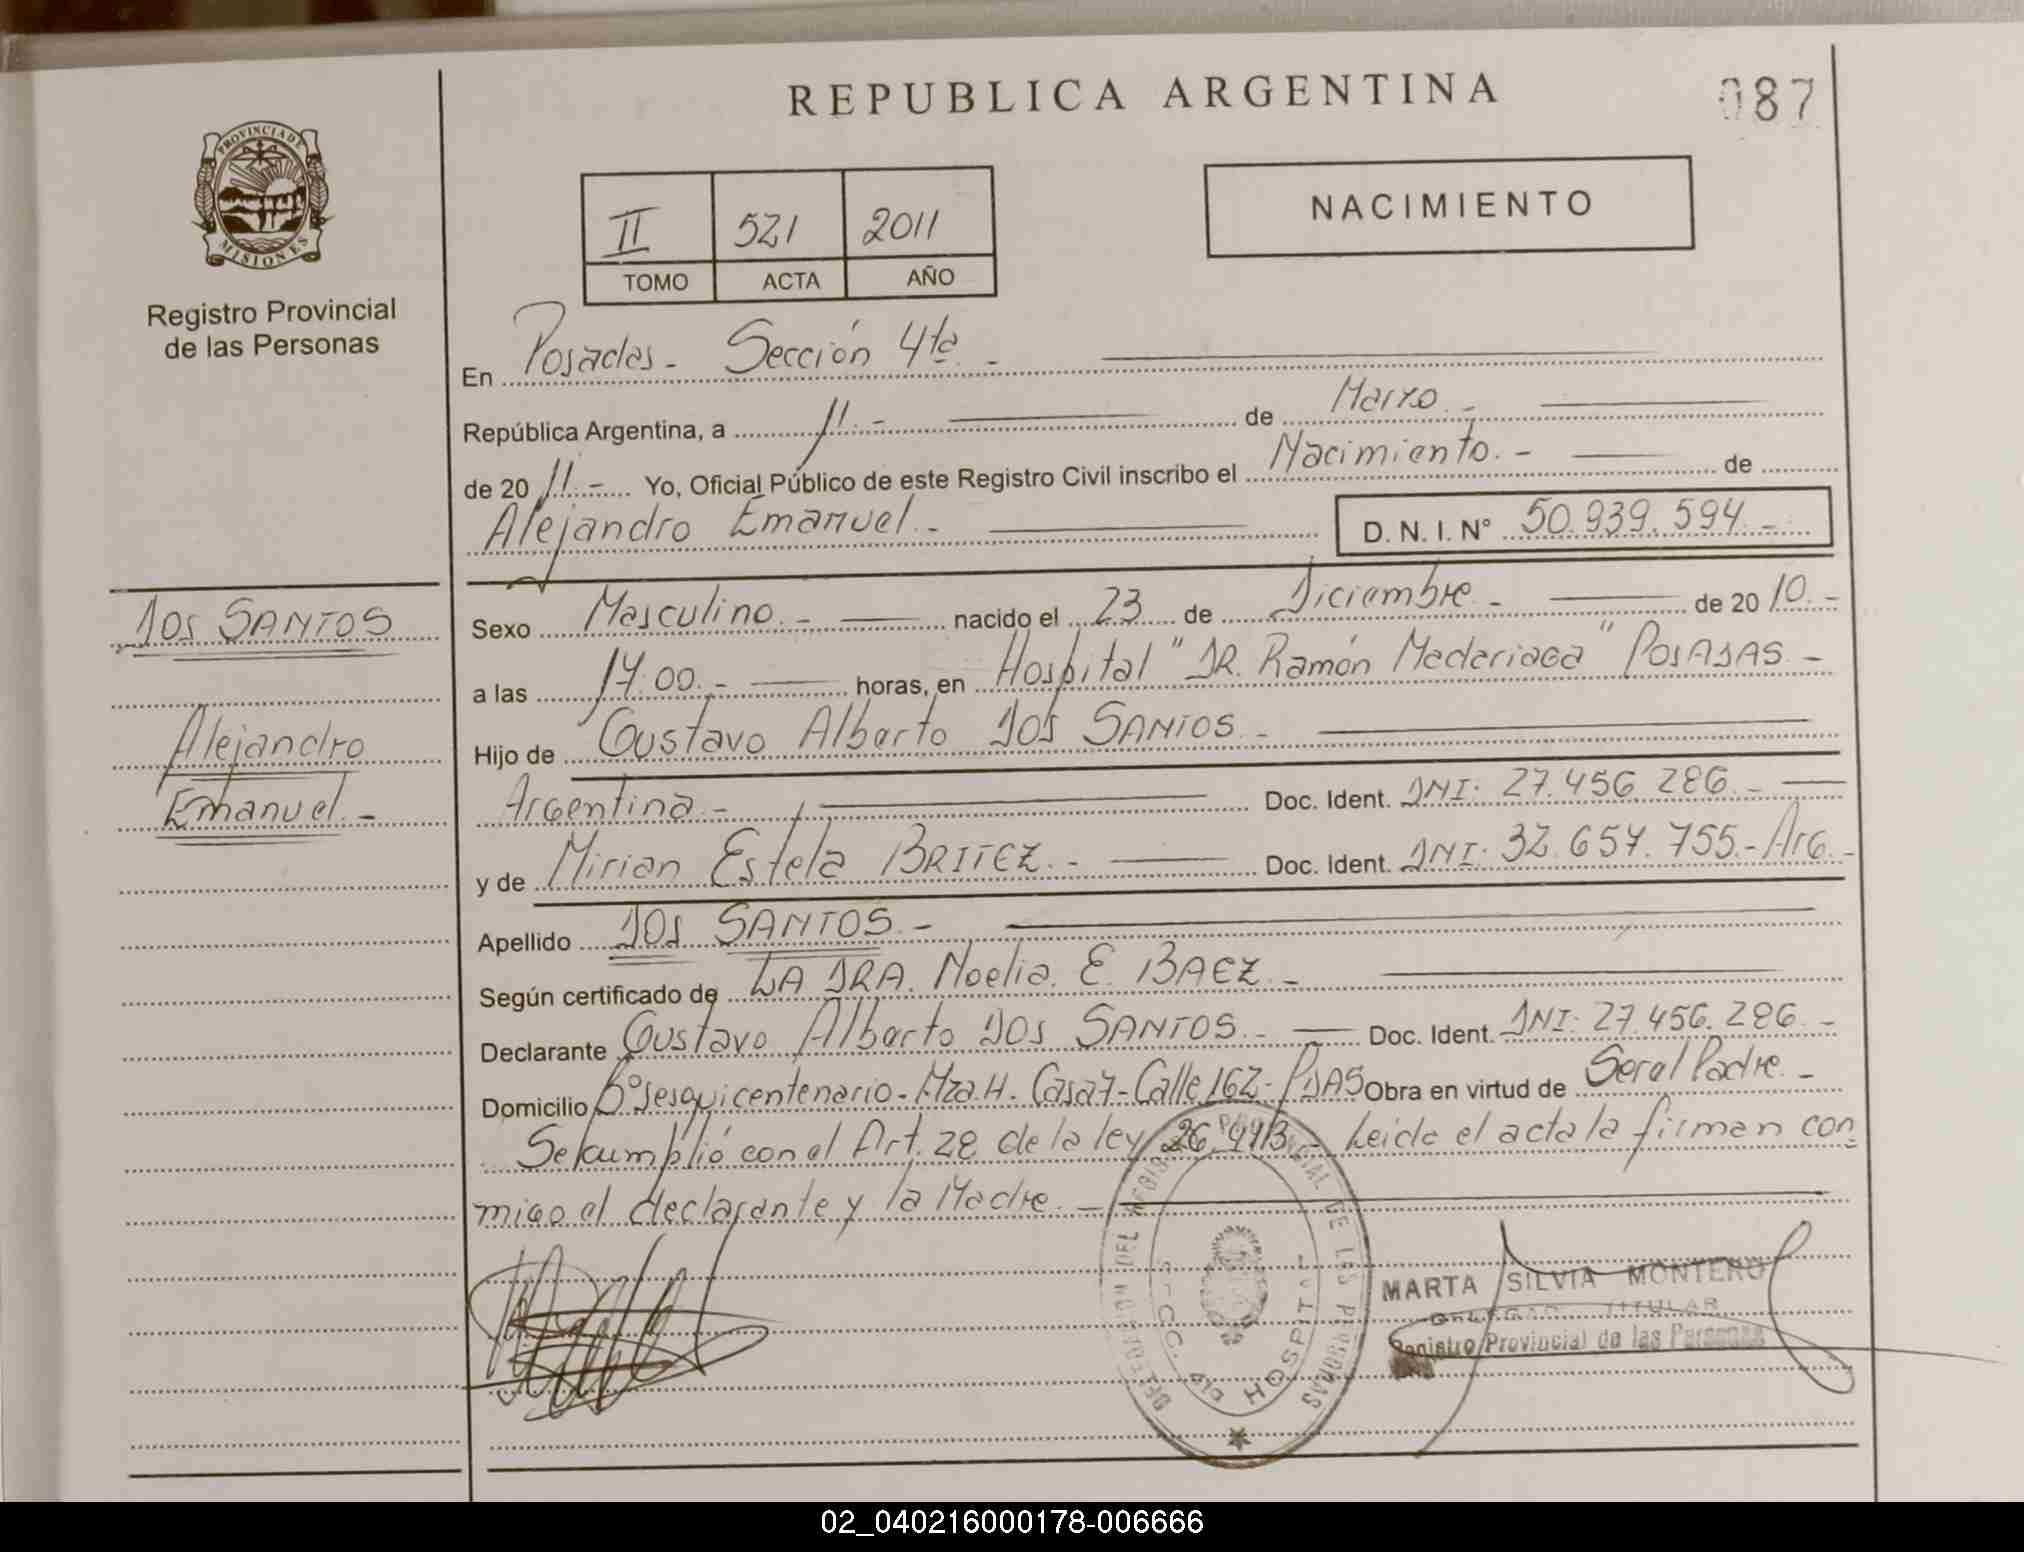 REPUBLICA ARGENTINA
087
PROVINCIA DE
MISIONES
Registro Provincial
de las Personas
II 521 2011
TOMO ACTA AÑO
NACIMIENTO
En Posadas - Sección 4ta -
República Argentina, a 11.- de Marzo.-
de 20 11.- Yo, Oficial Público de este Registro Civil inscribo el Nacimiento.- de
Alejandro Emanuel.- D. N. I. N° 50.939.594.-
DOS SANTOS
Alejandro
Emanuel.-
Sexo Masculino.- nacido el 23 de Diciembre.- de 20 10.-
a las 17:00.- horas, en Hospital "DR. Ramón Madariaga" POSADAS.-
Hijo de Gustavo Alberto DOS SANTOS.-
Argentina.- Doc. Ident. DNI: 27.456.286.-
y de Mirian Estela BRITEZ.- Doc. Ident. DNI: 32.657.755.- Arg.-
Apellido DOS SANTOS.-
Según certificado de LA DRA. Noelia. E. BAEZ.-
Declarante Gustavo Alberto DOS SANTOS.- Doc. Ident. DNI: 27.456.286.-
Domicilio B° Sesquicentenario - Mza. H. Casa 7 - Calle 162 - PDAS Obra en virtud de Ser el Padre.-
Se cumplió con el Art. 28 de la ley 26.413.- Leida el acta la firman con
migo el declarante y la Madre.-
DELEGACION DEL REGISTRO PROVINCIAL DE LAS PERSONAS
SECC. 4ta HOSPITAL
MARTA SILVIA MONTERO
DELEGADA TITULAR
Registro Provincial de las Personas
02_040216000178-006666